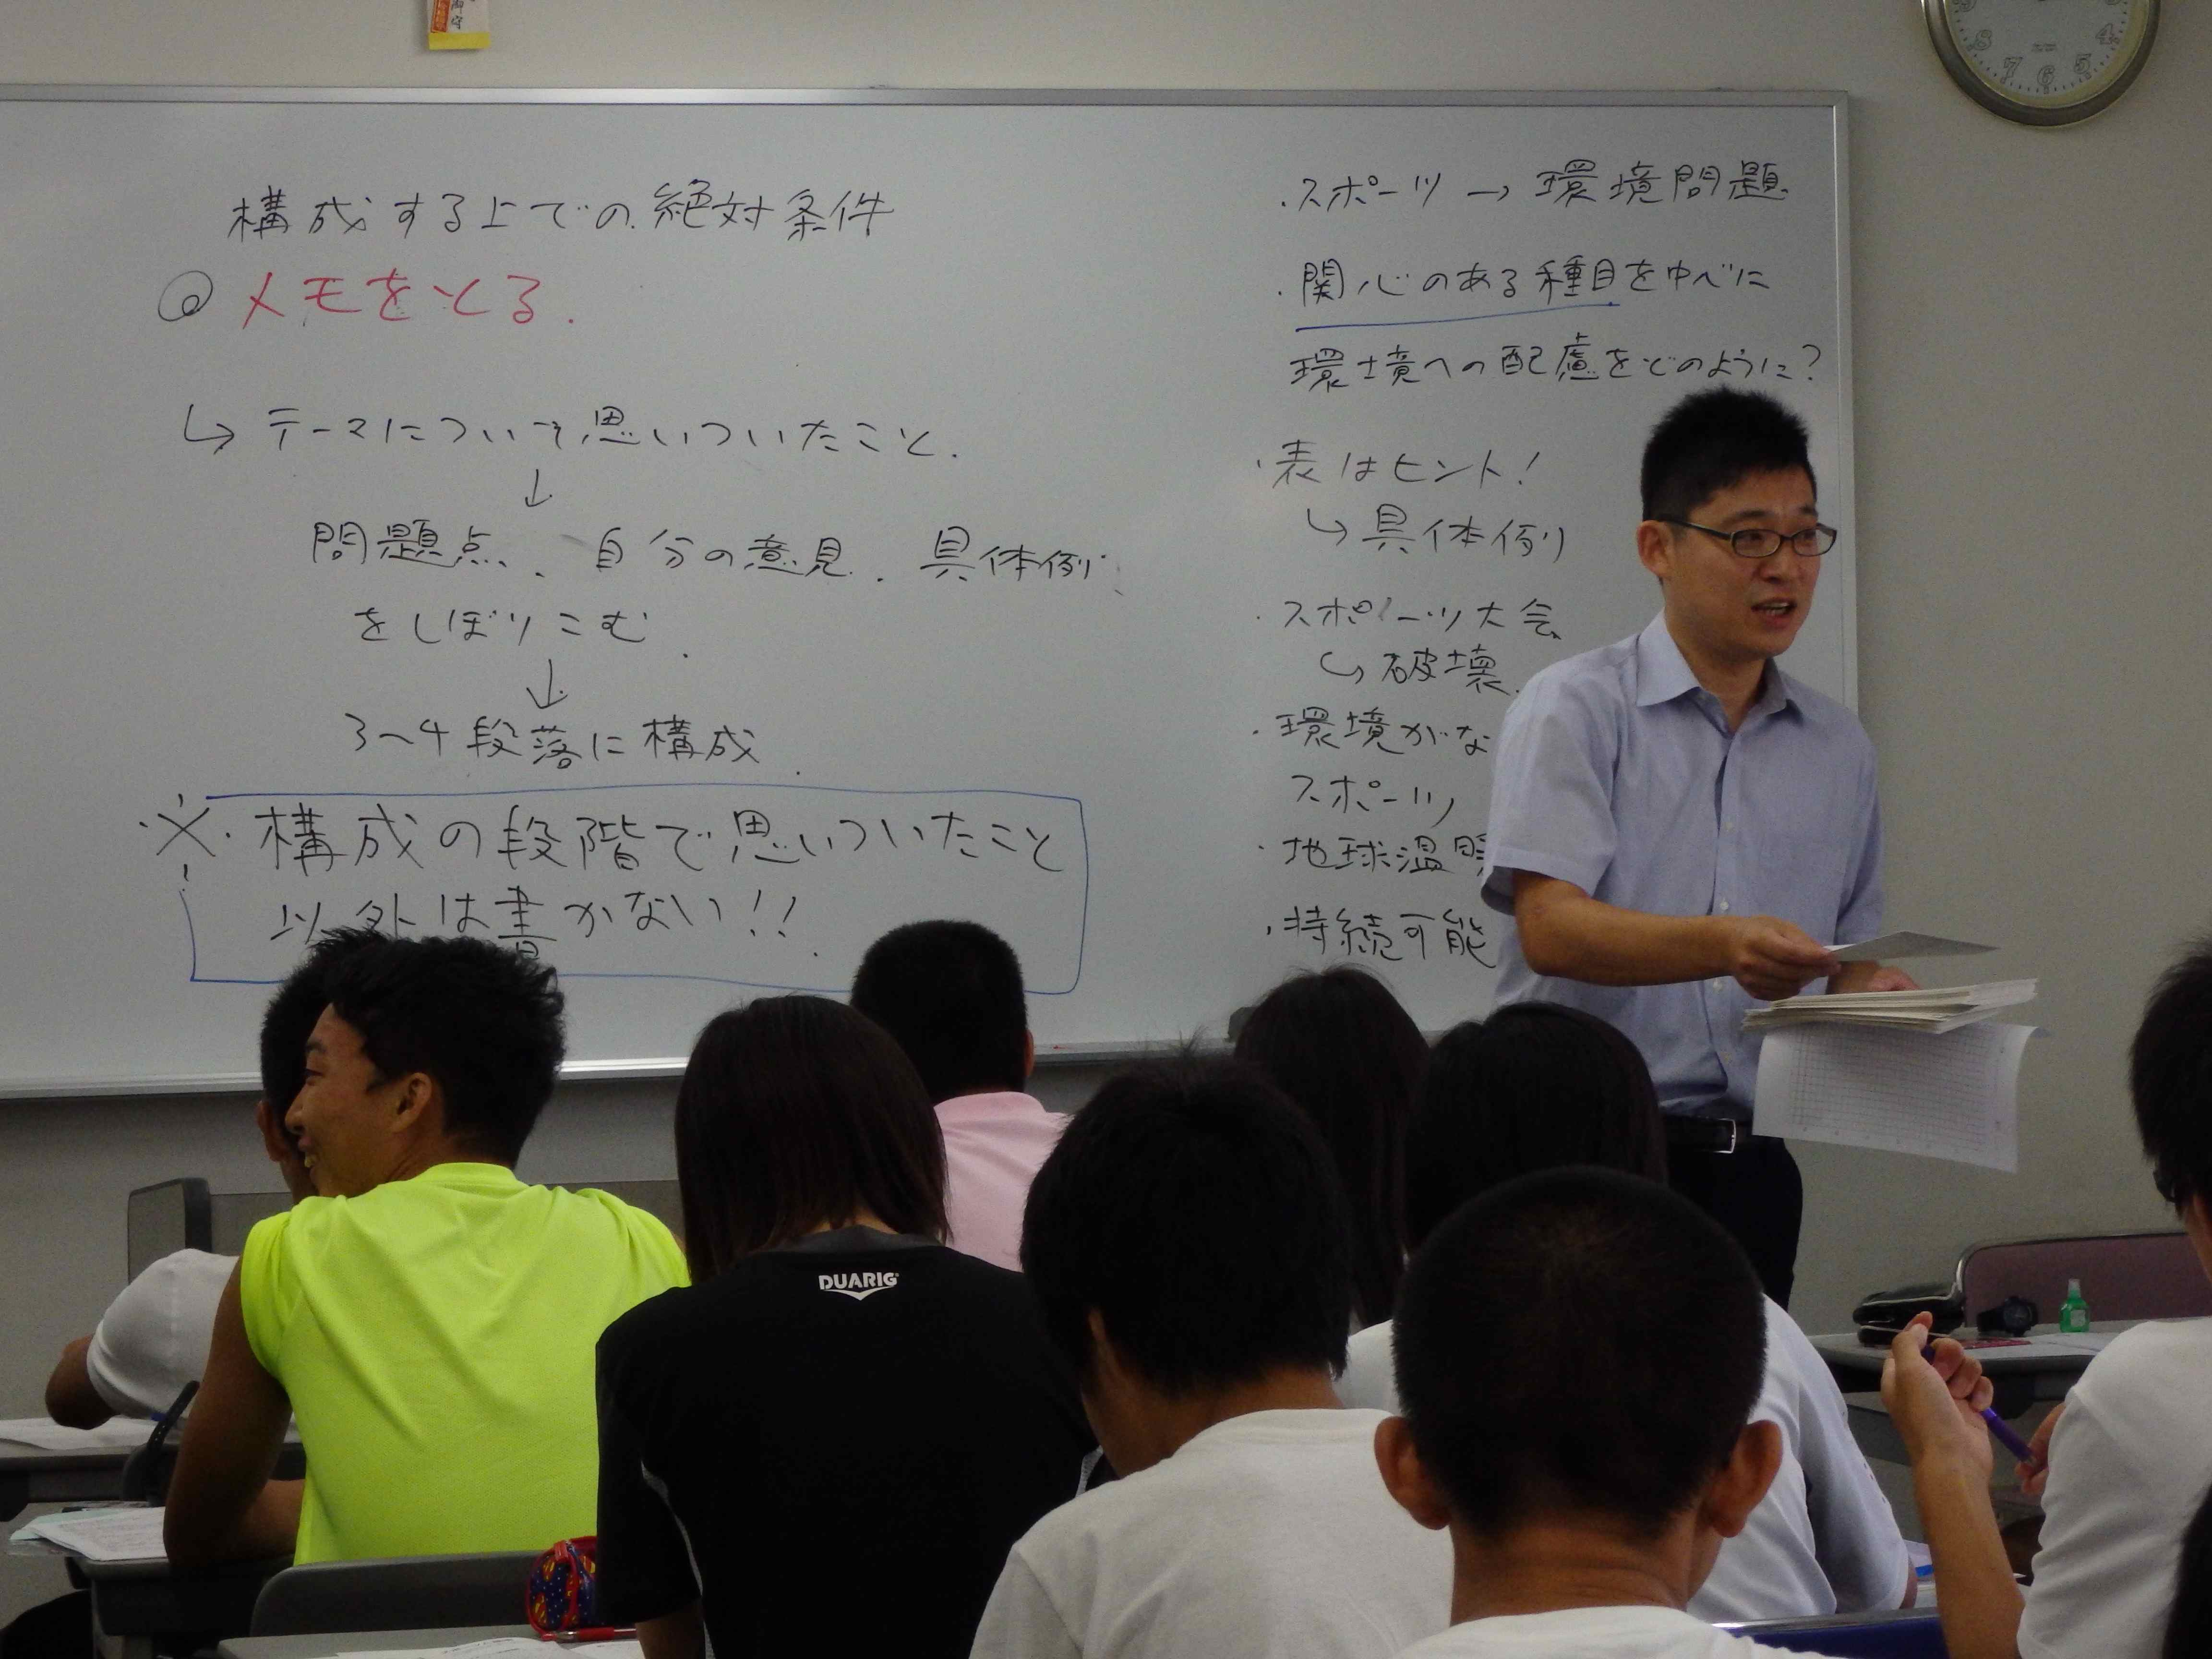 御守
構成する上での絶対条件
◎メモをとる.
↳ テーマについて思いついたこと.
↓
問題点、自分の意見、具体例
をしぼりこむ.
↓
3~4段落に構成.
※ 構成の段階で思いついたこと
以外は書かない!!
・スポーツ → 環境問題
・関心のある種目を中心に
環境への配慮をどのように?
・表はヒント!
↳ 具体例
・スポーツ大会
↳ 破壊
・環境がな
スポーツ
・地球温
・持続可能
8 7 6 5 4
DUARIG